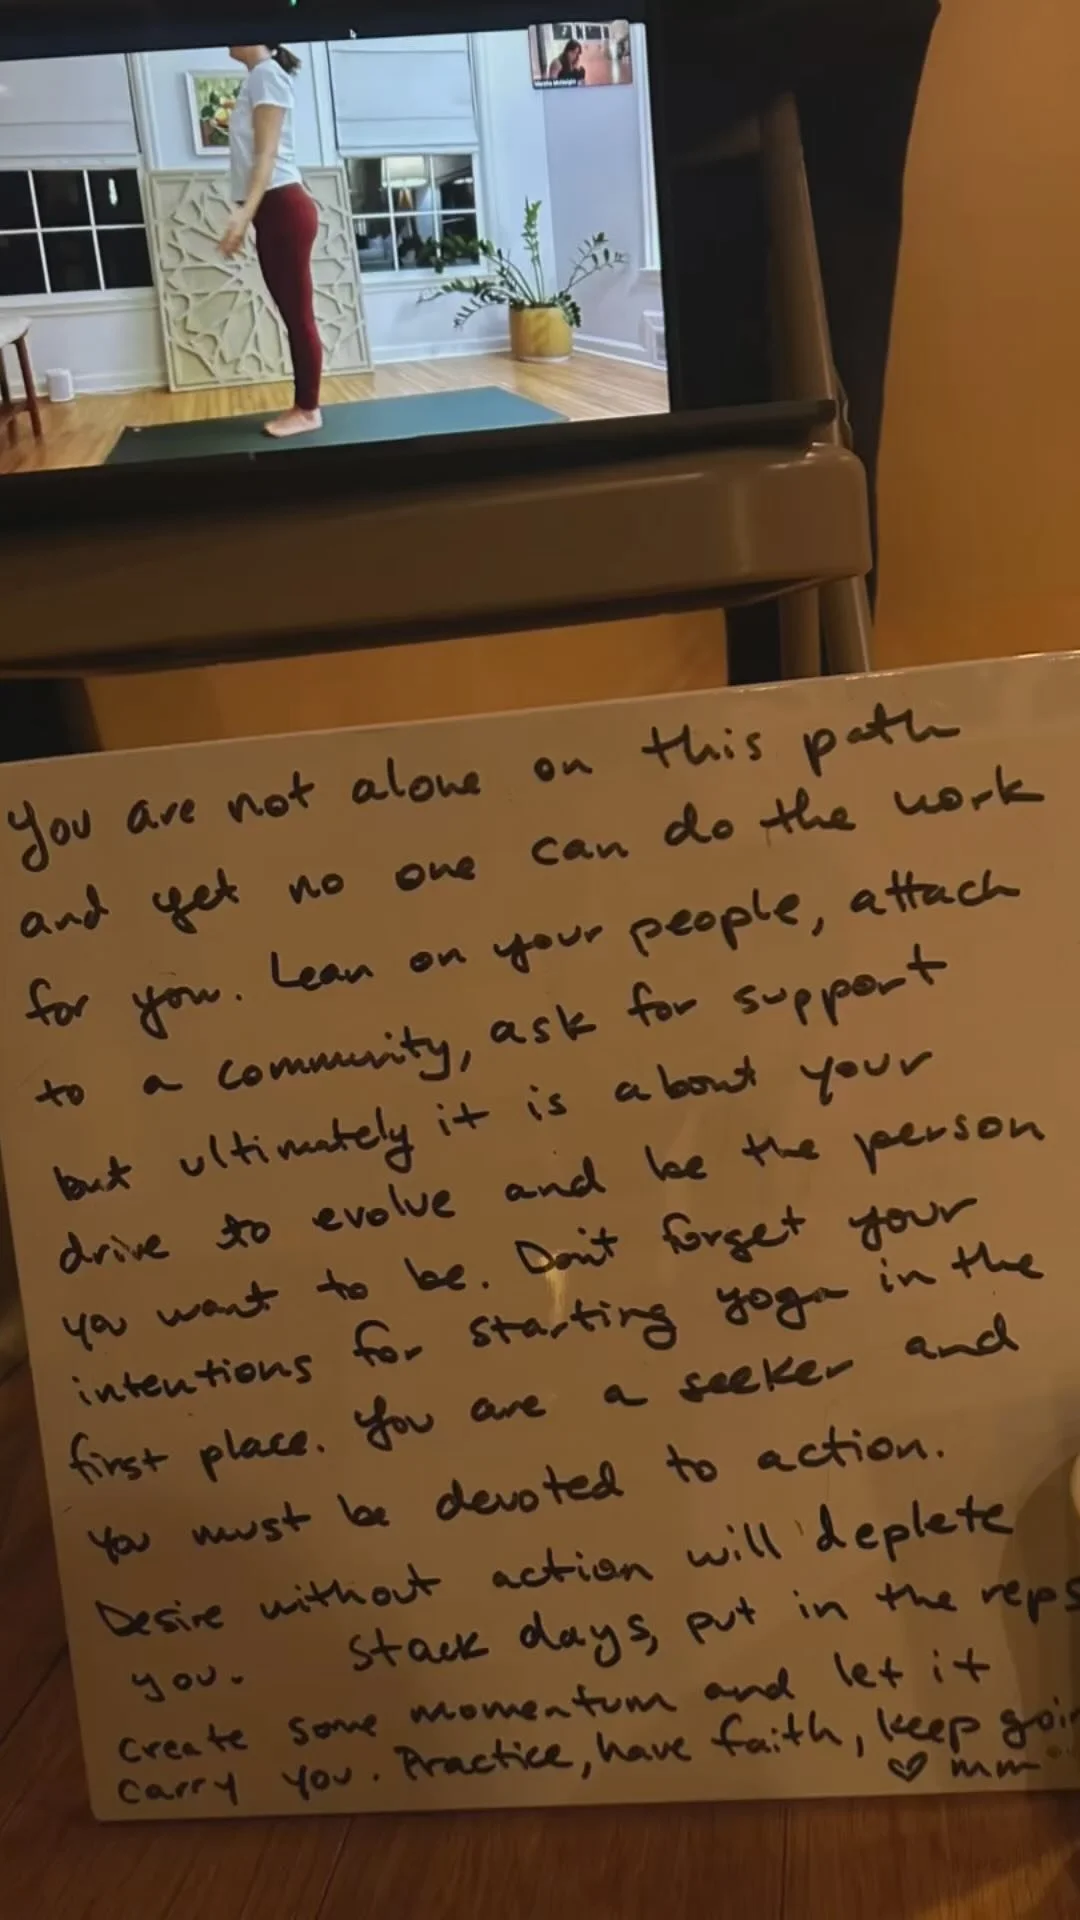 You are not alone on this path
and yet no one can do the work
for you. Lean on your people, attach
to a community, ask for support
but ultimately it is about your
drive to evolve and be the person
you want to be. Don't forget your
intentions for starting yoga in the
first place. You are a seeker and
You must be devoted to action.
Desire without action will deplete
you. Stack days, put in the reps
create some momentum and let it
carry you. Practice, have faith, keep goin
♡ mm